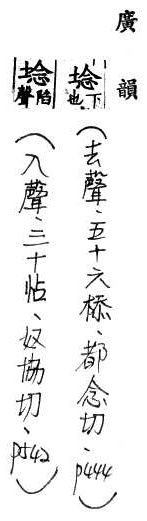 廣韻
埝下也(去聲、五十六㮇、都念切、p444)
埝陷聲(入聲、三十帖、奴協切、p542)